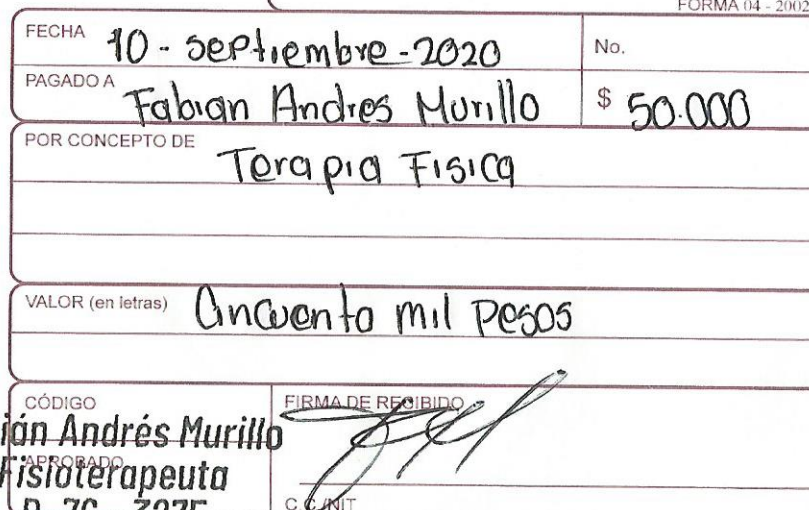 FORMA 04 - 2002
FECHA 10 - Septiembre - 2020
No.
PAGADO A Fabian Andres Murillo $ 50.000
POR CONCEPTO DE Terapia Fisica
VALOR (en letras) Cincuenta mil pesos
CÓDIGO
FIRMA DE RECIBIDO
ián Andrés Murillo
APROBADO
Fisioterapeuta
C.C./NIT